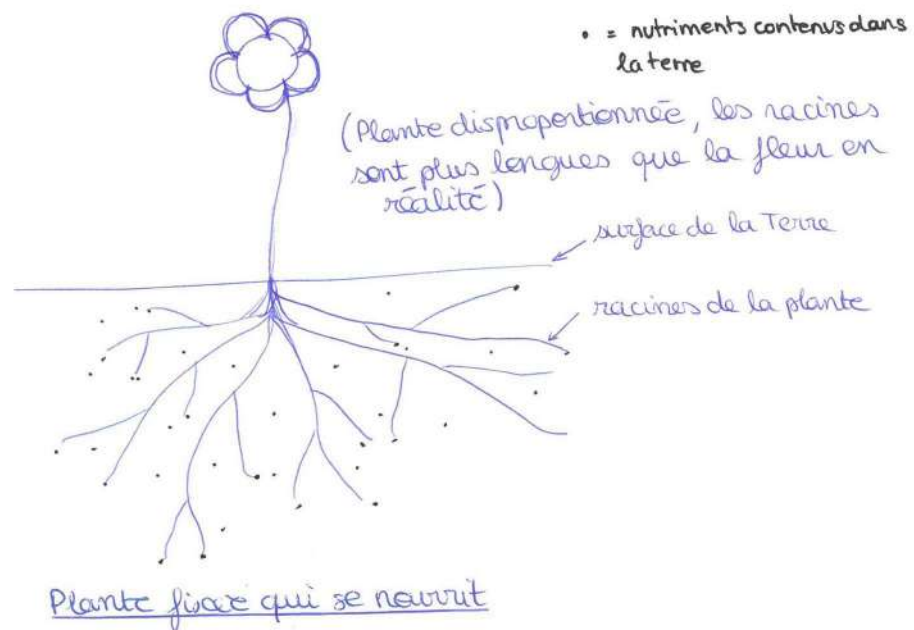 • = nutriments contenus dans
la terre
(Plante disproportionnée, les racines
sont plus longues que la fleur en
réalité)
surface de la Terre
racines de la plante
Plante fixée qui se nourrit